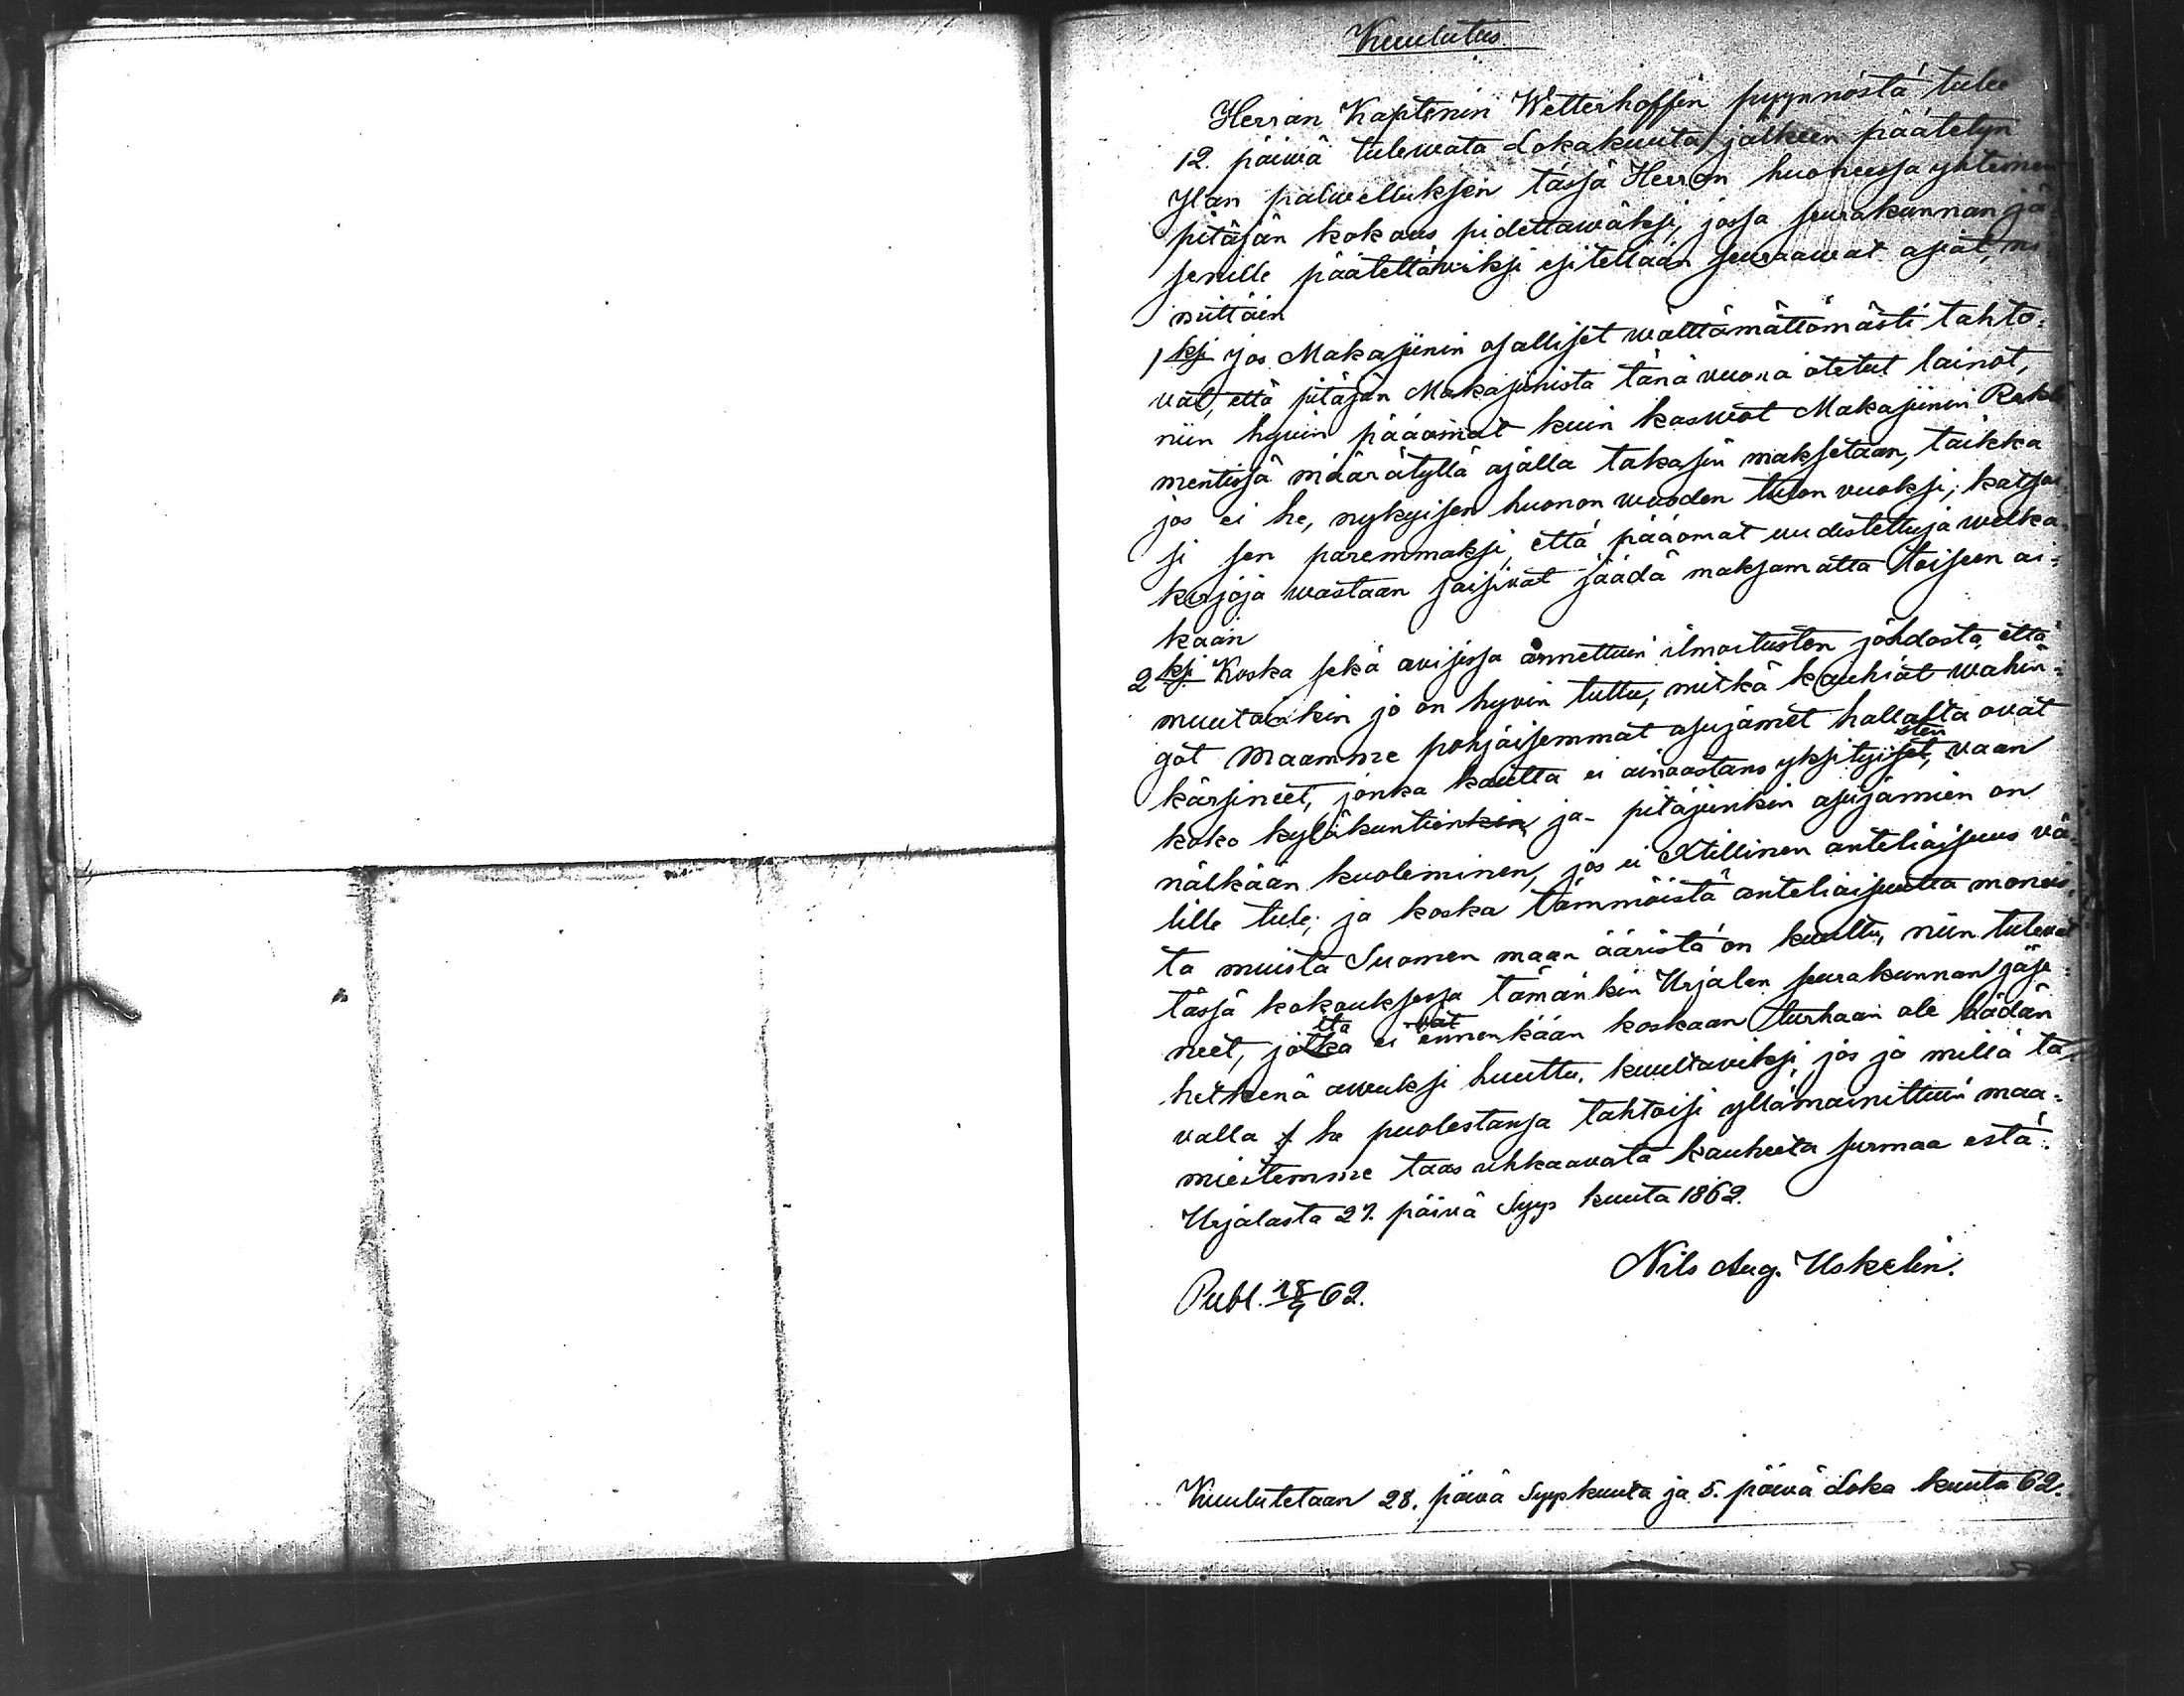 Kuulutus
Herran Kaptenin Wetterhoffin pyynnöstä tulee
12. päiwä tulewata Lokakuuta, jälkeen päätetyn
Ylän palwelluksen tässä Herran huoneessa yhteinen
pitäjän kokous pidettäwäksi, jossa seurakunnan jä-
senille päätettäwiksi esitellään seuraawat asiat, ni-
mittäin
1ksi jos Makasiinin osalliset wälttämättömästi tahto-
vat, että pitäjän Makasiinista tänä vuona otetut lainat,
niin hywin pääomat kuin kaswot Makasiinin Rekle-
mentissä määrätyllä ajalla takasin maksetaan, taikka
jos ei he, nykyisen huonon wuoden tulon vuoksi, katsoi-
si sen paremmaksi, että pääomat uudistettuja welka-
kirjoja wastaan saisivat jäädä maksamatta toiseen ai-
kaan
2ksi Koska sekä avisissa annettuin ilmoitusten johdosta, että
muutoinkin jo on hyvin tuttu, mitkä kauhiat wahin-
got Maamme pohjaisemmat asujamet hallalta ovat
kärsineet, jonka kautta ei ainoastans yksityiset, vaan
sten
koko kyläkuntienkin ja pitäjinkin asujamien on
nälkään kuoleminen, jos ei Xtillinen anteliaisuus vä-
lille tule; ja koska tämmöistä anteliaisuutta mones-
ta muista Suomen maan ääristä on kuultu, niin tulevat
tässä kokouksessa tämänkin Urjalan seurakunnan jäse-
neet, jotka ei ennenkään koskaan turhaan ole hädän
ita vät
hetkenä awuksi huuttu, kuultaviksi, jos ja millä ta-
valla he puolestansa tahtoisi yllämainittuin maa-
miestemme taas uhkaavata kauheeta surmaa estä.
Urjalasta 27. päivä Syys kuuta 1862.
Nils Aug. Uskelin.
Publ. 28/9 62.
Kuulutetaan 28. päivä Syyskuuta ja 5. päivä Loka kuuta 62.